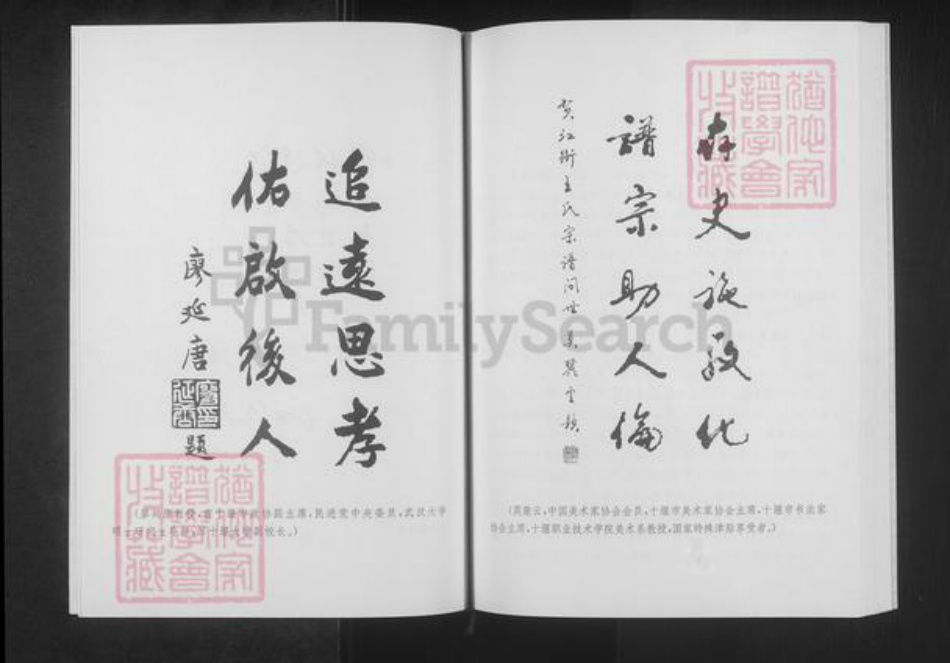 史施教化
譜宗助人倫
贺江街王氏宗谱问世
(周䶮云,中国美术家协会会员,十堰市美术家协会主席,十堰市书法家
协会主席,十堰职业技术学院美术系教授,国家特殊津贴享受者。)
追遠思孝
佑啟後人
廖延唐
題
副主席,民进党中央委员,武汉大学
校长。)
FamilySearch
譜學會
收藏